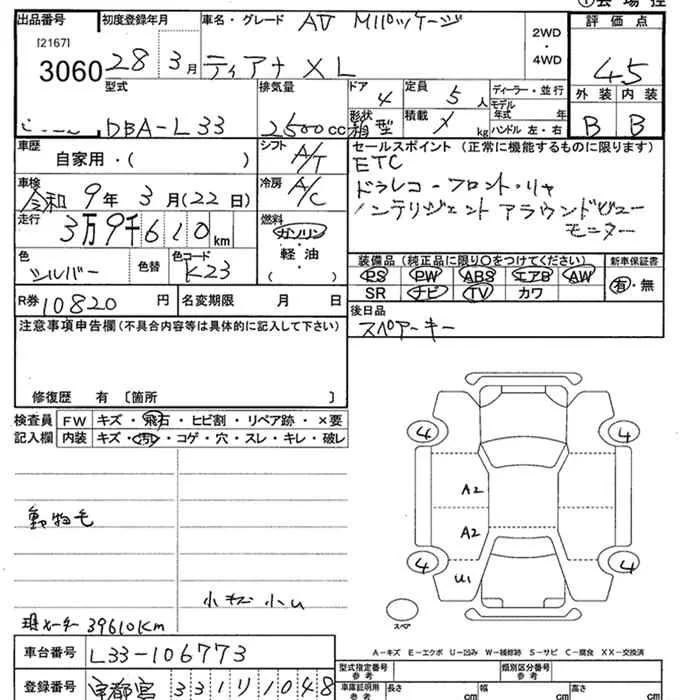 ①会場控
出品番号 初度登録年月 車名・グレード AV Mパッケージ
[2167]
3060 28 3月 ティアナ XL
2WD
・
4WD
評価点
4.5
型式 DBA-L33
排気量 2500cc
ドア 4 定員 5人
ディーラー・並行
形状 箱型 積載 kg
モデル年式 年
ハンドル 左・右
外装 内装
B B
車歴 自家用・( )
シフト A/T
セールスポイント(正常に機能するものに限ります)
ETC
ドラレコ-フロント・リヤ
インテリジェント アラウンドビュー
モニター
車検 令和 9年 3月(22日)
冷房 A/C
走行 3万9千610km
燃料 ガソリン
・
軽油
・
( )
色 シルバー 色替 色コード K23
装備品(純正品に限り○をつけてください) 新車保証書
PS PW ABS エアB AW
SR ナビ TV カワ
有・無
R券 10820円 名変期限 月 日
後日品
スペアーキー
注意事項申告欄(不具合内容等は具体的に記入して下さい)
修復歴 有 [箇所 ]
検査員 FW キズ・飛石・ヒビ割・リペア跡・×要
記入欄 内装 キズ・汚れ・コゲ・穴・スレ・キレ・破レ
動物毛
小キズ 小U
現メーター39610Km
4 4
A2
A2
4 4
U1
スペア
A-キズ E-エクボ U-凹み W-補修跡 S-サビ C-腐食 XX-交換済
車台番号 L33-106773
登録番号 宇都宮 331 リ 1048
型式指定番号 参考 類別区分番号 参考
車庫証明用 参考 長さ cm 幅 cm 高さ cm